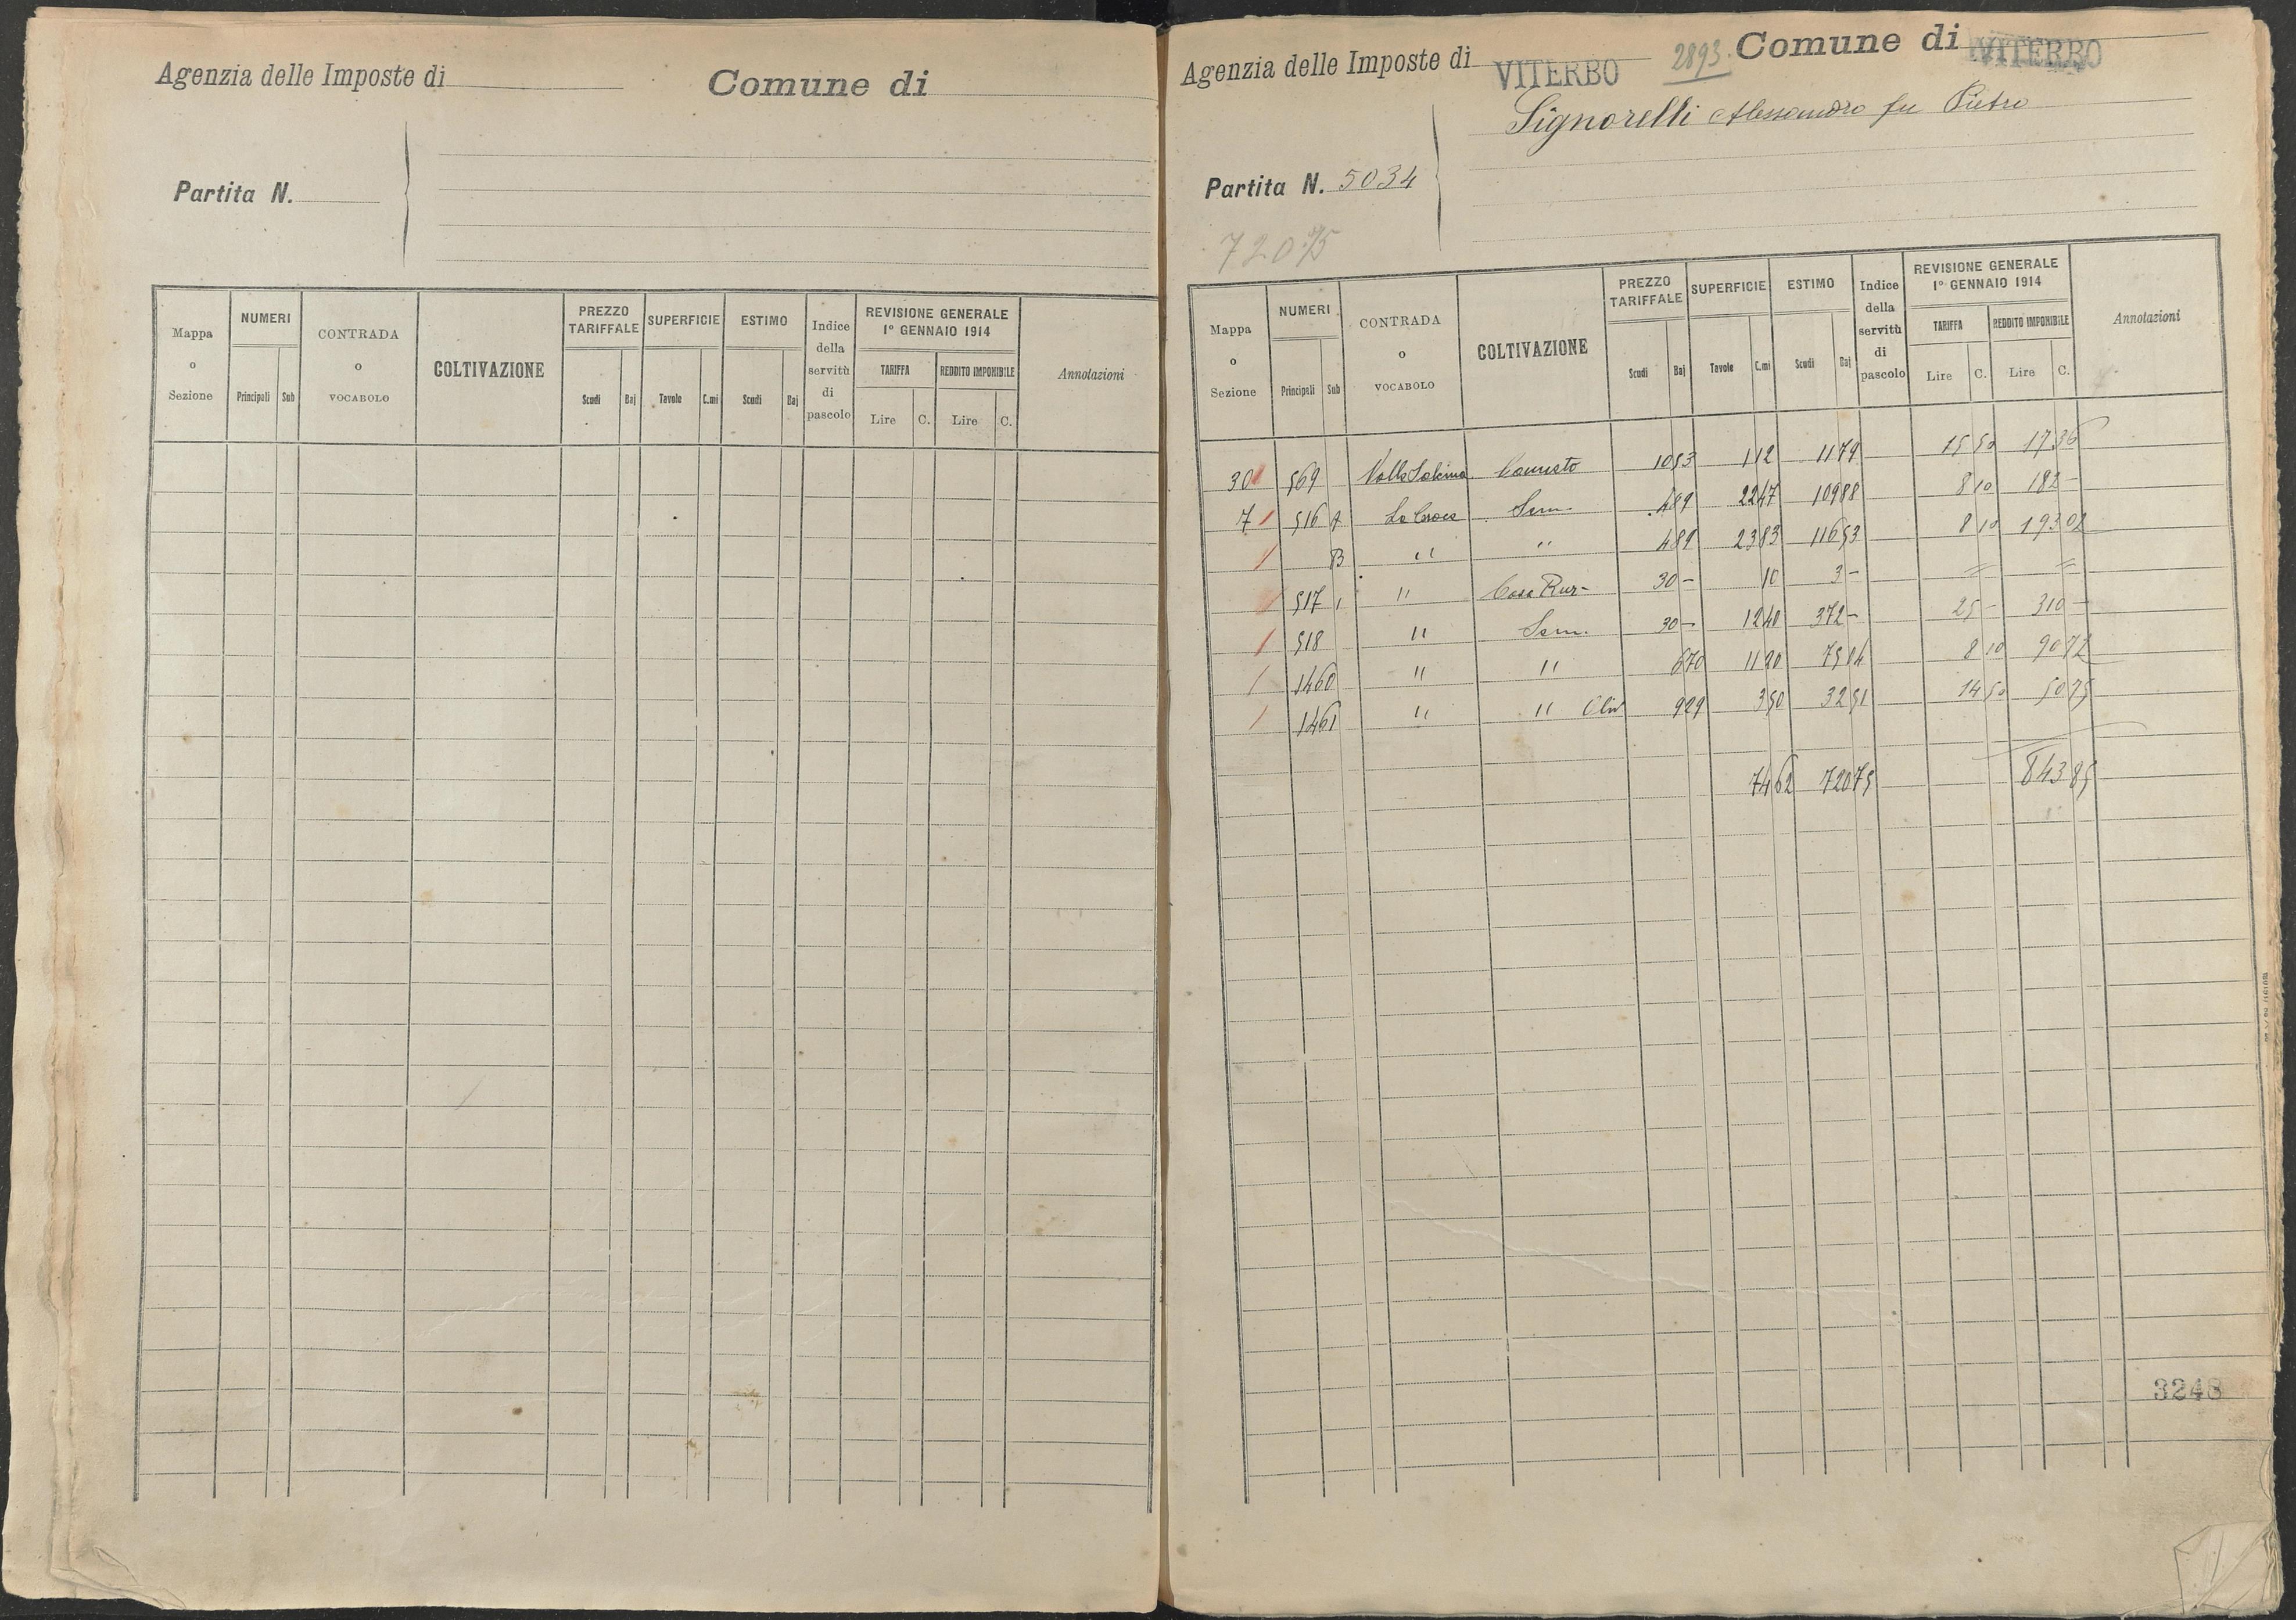 Agenzia delle Imposte di
Comune di
Partita N.
Mappa o Sezione
NUMERI
Principali Sub
CONTRADA o VOCABOLO
COLTIVAZIONE
PREZZO TARIFFALE
Scudi Baj
SUPERFICIE
Tavole C.mi
ESTIMO
Scudi Baj
Indice della servitù di pascolo
REVISIONE GENERALE
1º GENNAIO 1914
TARIFFA REDDITO IMPONIBILE
Lire C. Lire C.
Annotazioni
Agenzia delle Imposte di VITERBO 2893. Comune di VITERBO
Signorelli Alessandro fu Pietro
Partita N. 5034
720.75
Mappa o Sezione
NUMERI
Principali Sub
CONTRADA o VOCABOLO
COLTIVAZIONE
PREZZO TARIFFALE
Scudi Baj
SUPERFICIE
Tavole C.mi
ESTIMO
Scudi Baj
Indice della servitù di pascolo
REVISIONE GENERALE
1º GENNAIO 1914
TARIFFA REDDITO IMPONIBILE
Lire C. Lire C.
Annotazioni
30 569 Valle 10 53 1 12 11 79 15 50 17 36
7 516 A La Croce Sem. 4 89 22 47 109 88 8 10 182 –
B " " 4 89 23 83 116 53 8 10 193 02
517 1 " Casa Rur– 30 – 10 3 – = =
518 " Sem. 30 – 12 40 372 – 25 – 310 –
1460 " " 6 70 11 20 75 04 8 10 90 72
1461 " " Oliv 9 29 3 50 32 51 14 50 50 75
74 62 720 75 843 85
3248